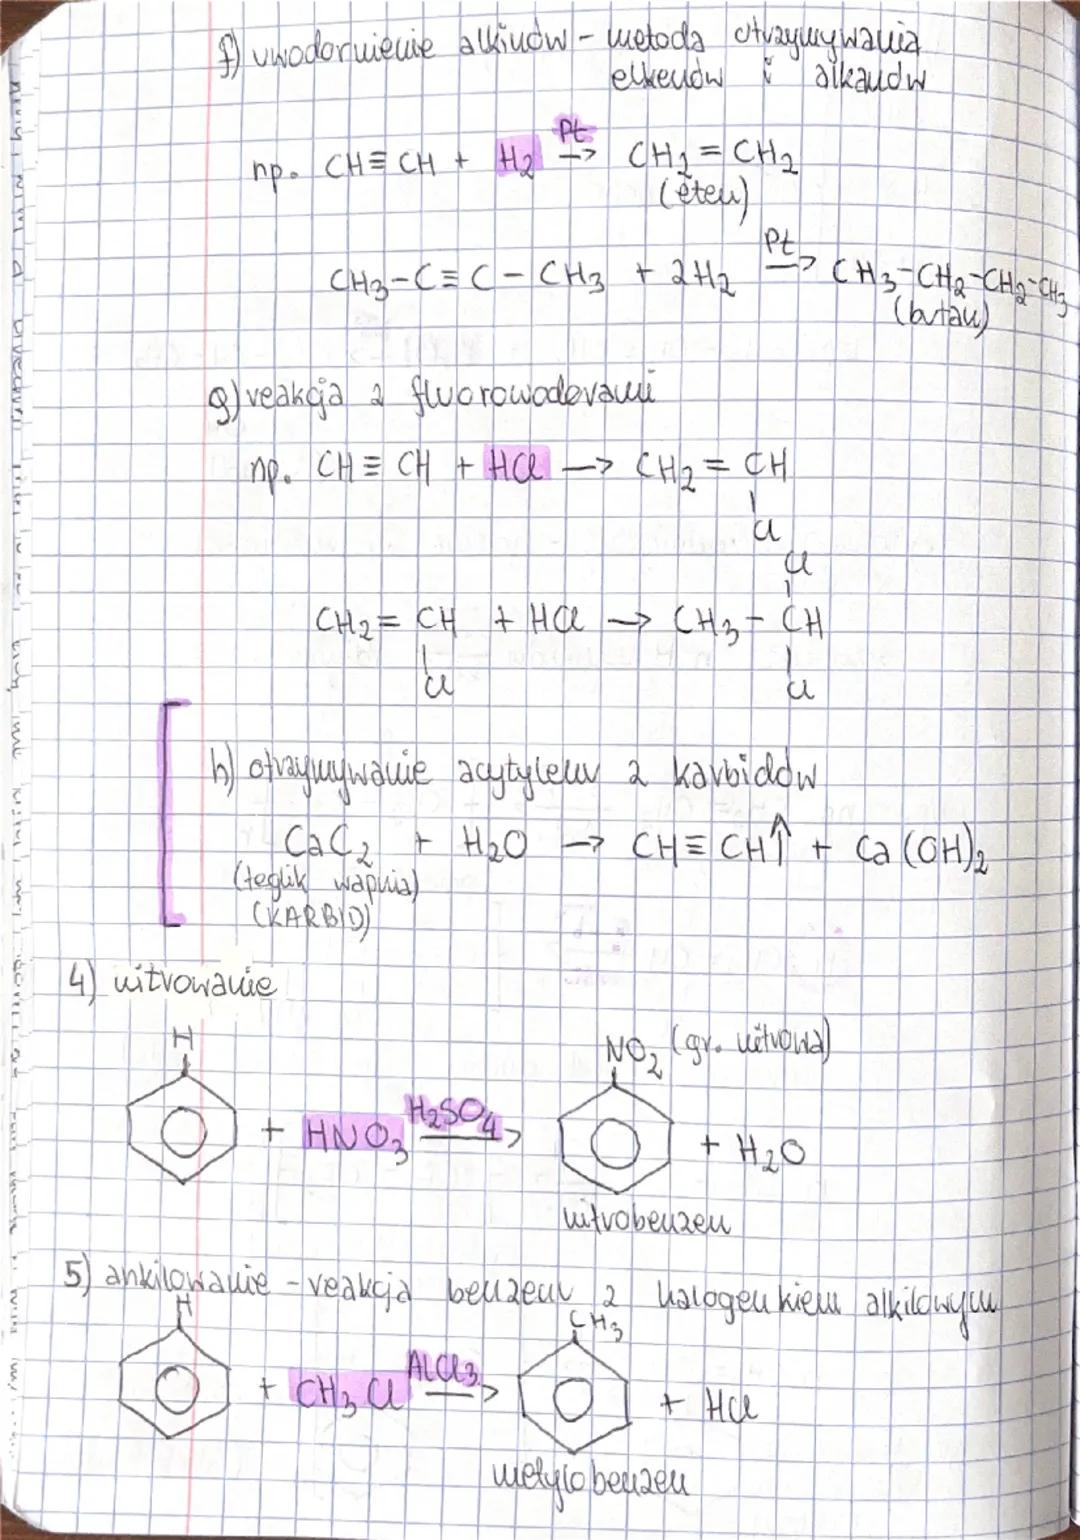 f) uwodornienie alkinów - metoda otrzymywania
elkenów i alkanów
np. CH≡CH + H₂ Pt → CH₂=CH₂
(eten)
CH₃-C≡C-CH₃ + 2H₂ Pt → CH₃-CH₂-CH₂-CH₃
(butan)
g) reakcja z fluorowodorami
np. CH≡CH + HCl → CH₂=CH
Cl
Cl
CH₂=CH + HCl → CH₃-CH
Cl Cl
h) otrzymywanie acytylenu z karbidów
CaC₂ + H₂O → CH≡CH↑ + Ca(OH)₂
(teglik wapnia)
(KARBID)
4) nitrowanie
H NO₂ (gr. nitrowa)
+ HNO₃ H₂SO₄ → + H₂O
nitrobenzen
5) ankilowanie - reakcja benzenu z halogenkiem alkilowym
H CH₃
+ CH₃Cl AlCl₃ → + HCl
metylobenzen